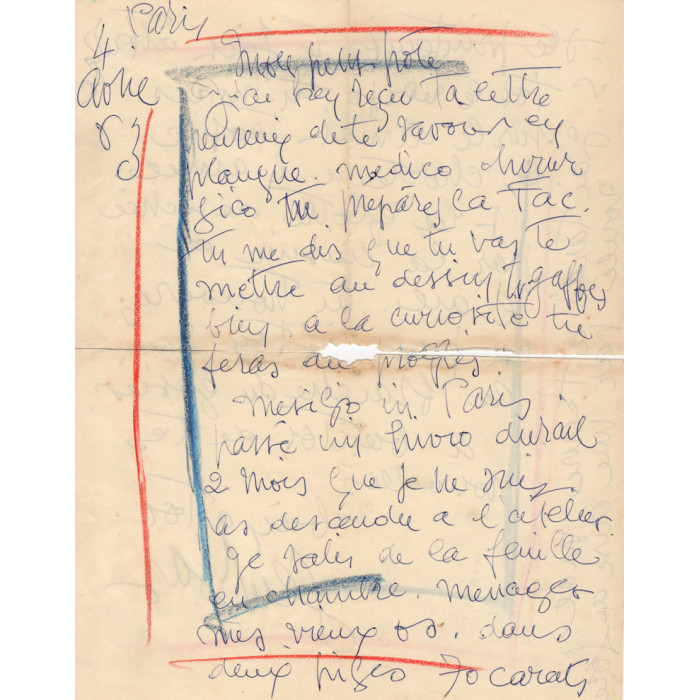 Paris
4
Mon petit pote
j'ai bien reçu ta lettre
heureux de te savoir en
planque. medico chirur
gico tu prepares ca Fac.
tu me dis que tu vas te
mettre au dessin tu gaffes
bien a la curiosité tu
feras du progres.
in Paris
passé un hivro durail
2 mois que je ne suis
pas descendu a l'atelier.
Je salis de la feuille
en chambre. menager
mes vieux os. dans
deux piges 70 carats